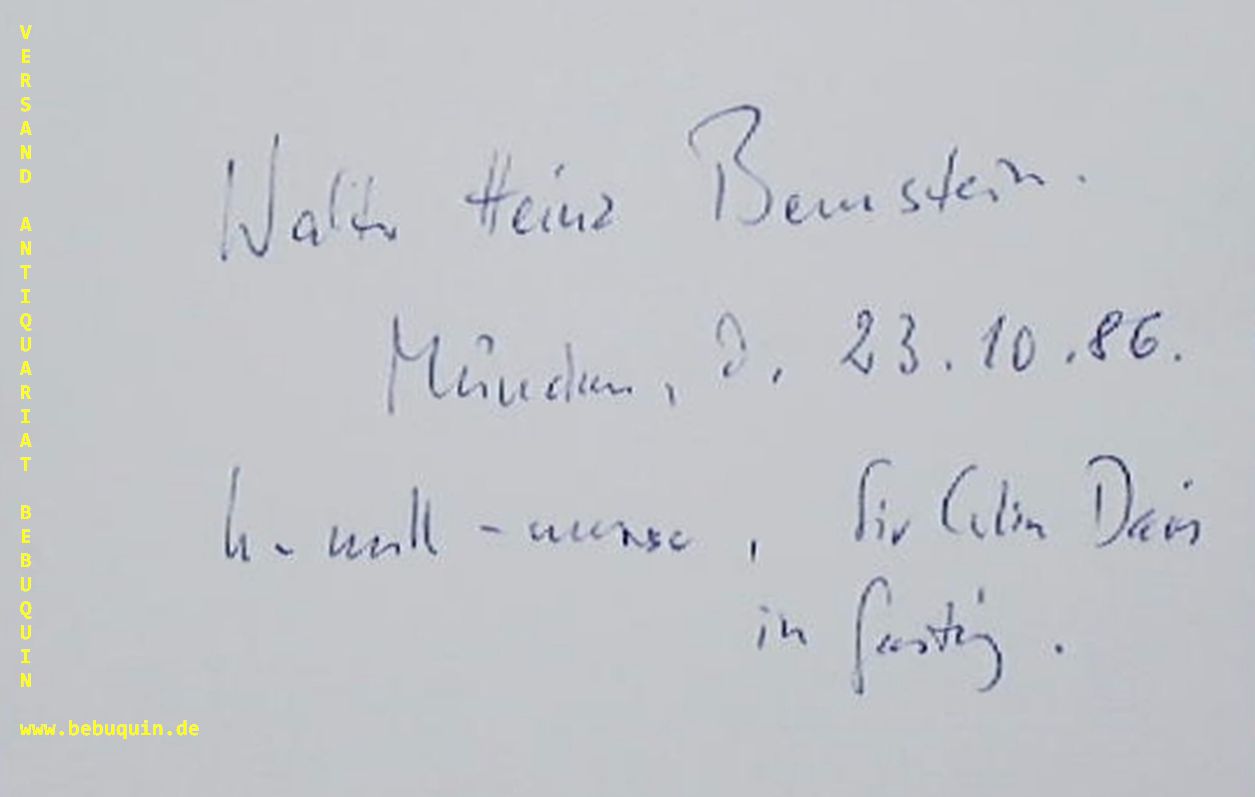 VERSAND ANTIQUARIAT BEBUQUIN
www.bebuquin.de
Walter Heinz Bernstein.
München, d. 23.10.86.
h-moll-messe, Sir Colin Davis
in Gasteig.